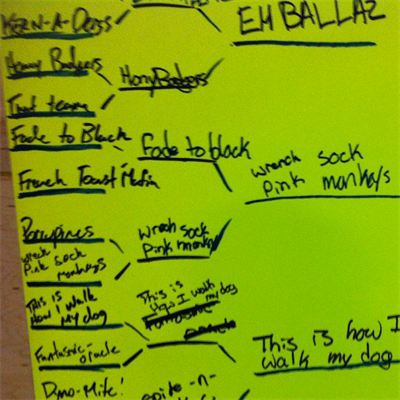 Honey Badgers
That team
Fade to Black
French Toast Mafia
Porcupines
wrech
Pink sock
monkeys
This is
How I Walk
My dog
Fantastic-oracle
Dyno-Mite!
Hony Badgers
Fade to black
Wrech sock
Pink monkey
This is
How I walk
my dog
spite -n-
EM BALLAZ
wrench sock
Pink monkeys
This is how I
walk my dog